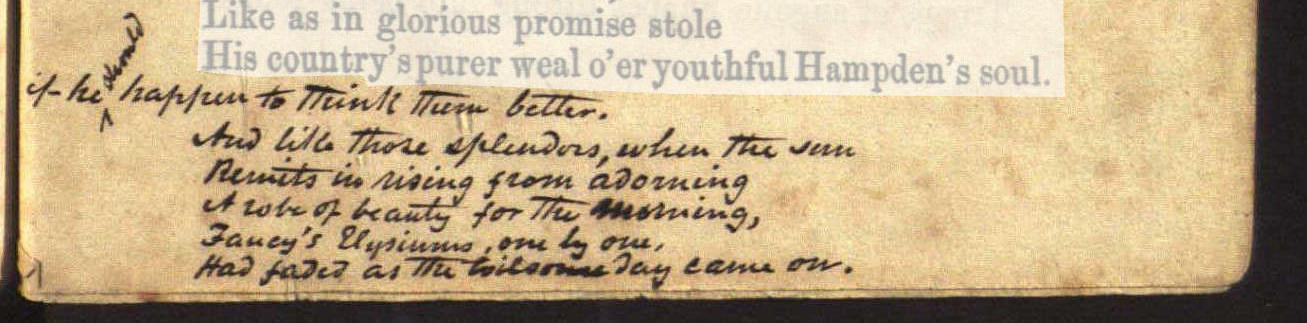 Like as in glorious promise stole
His country's purer weal o'er youthful Hampden's soul.
should
if he ^ happen to think them better.
And like those splendors, when the sun
Remits in rising from adorning
A robe of beauty for the morning,
Fancy's Elysiums, one by one,
Had faded as the toilsome day came on.